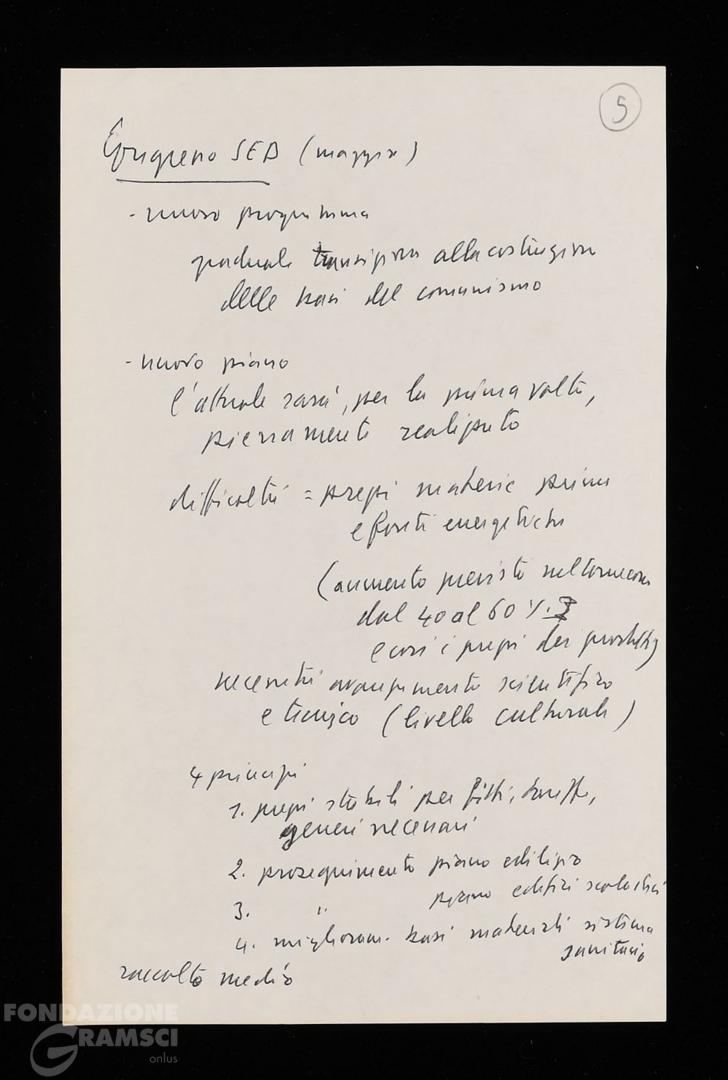 5
Congresso SED (maggio)
- nuovo programma
graduale transizione alla costruzione
delle basi del comunismo
- nuovo piano
l'attuale sarà, per la prima volta,
pienamente realizzato
difficoltà = prezzi materie prime
e fonti energetiche
(aumento previsto nel
dal 40 al 60 %
e così i prezzi dei prodotti)
necessità avanzamento scientifico
e tecnico (livello culturale)
4 principi
1. prezzi stabili per fitti, tariffe,
generi necessari
2. proseguimento piano edilizio
3. " piano edifici scolastici
4. miglioram. basi materiali sistema
sanitario
raccolto medio
FONDAZIONE
GRAMSCI
onlus